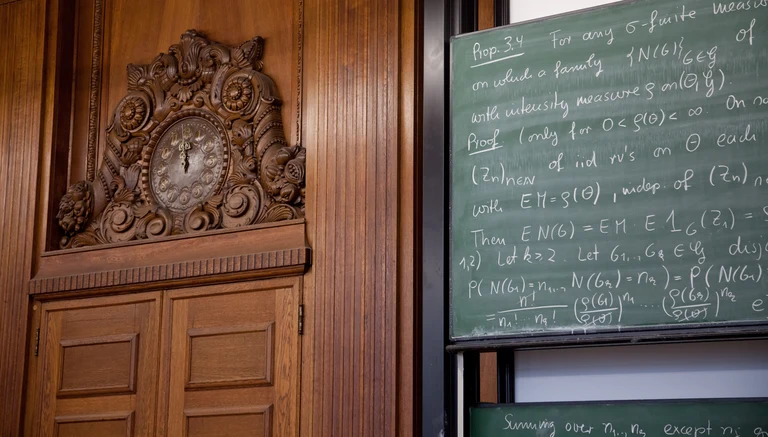 Prop. 3.4 For any σ-finite measu
on which a family {N(G)}_{G∈𝒢} of
with intensity measure ρ on (Θ, 𝒢)
Proof (only for 0 < ρ(Θ) < ∞ On
(Z_n)_{n∈ℕ} of iid rv's on Θ each
with EM = ρ(Θ), indep. of (Z_n)
Then E N(G) = EM · E 1_G (Z_1) =
1,2) Let k ≥ 2. Let G_1, ..., G_k ∈ 𝒢 disj
P(N(G_1) = n_1, ..., N(G_k) = n_k) = P(N(G_1)
= n! / n_1! ... n_k! (ρ(G_1)/ρ(Θ))^{n_1} ... (ρ(G_k)/ρ(Θ))^{n_k} e
Summing over n_1, ..., n_k except n_i